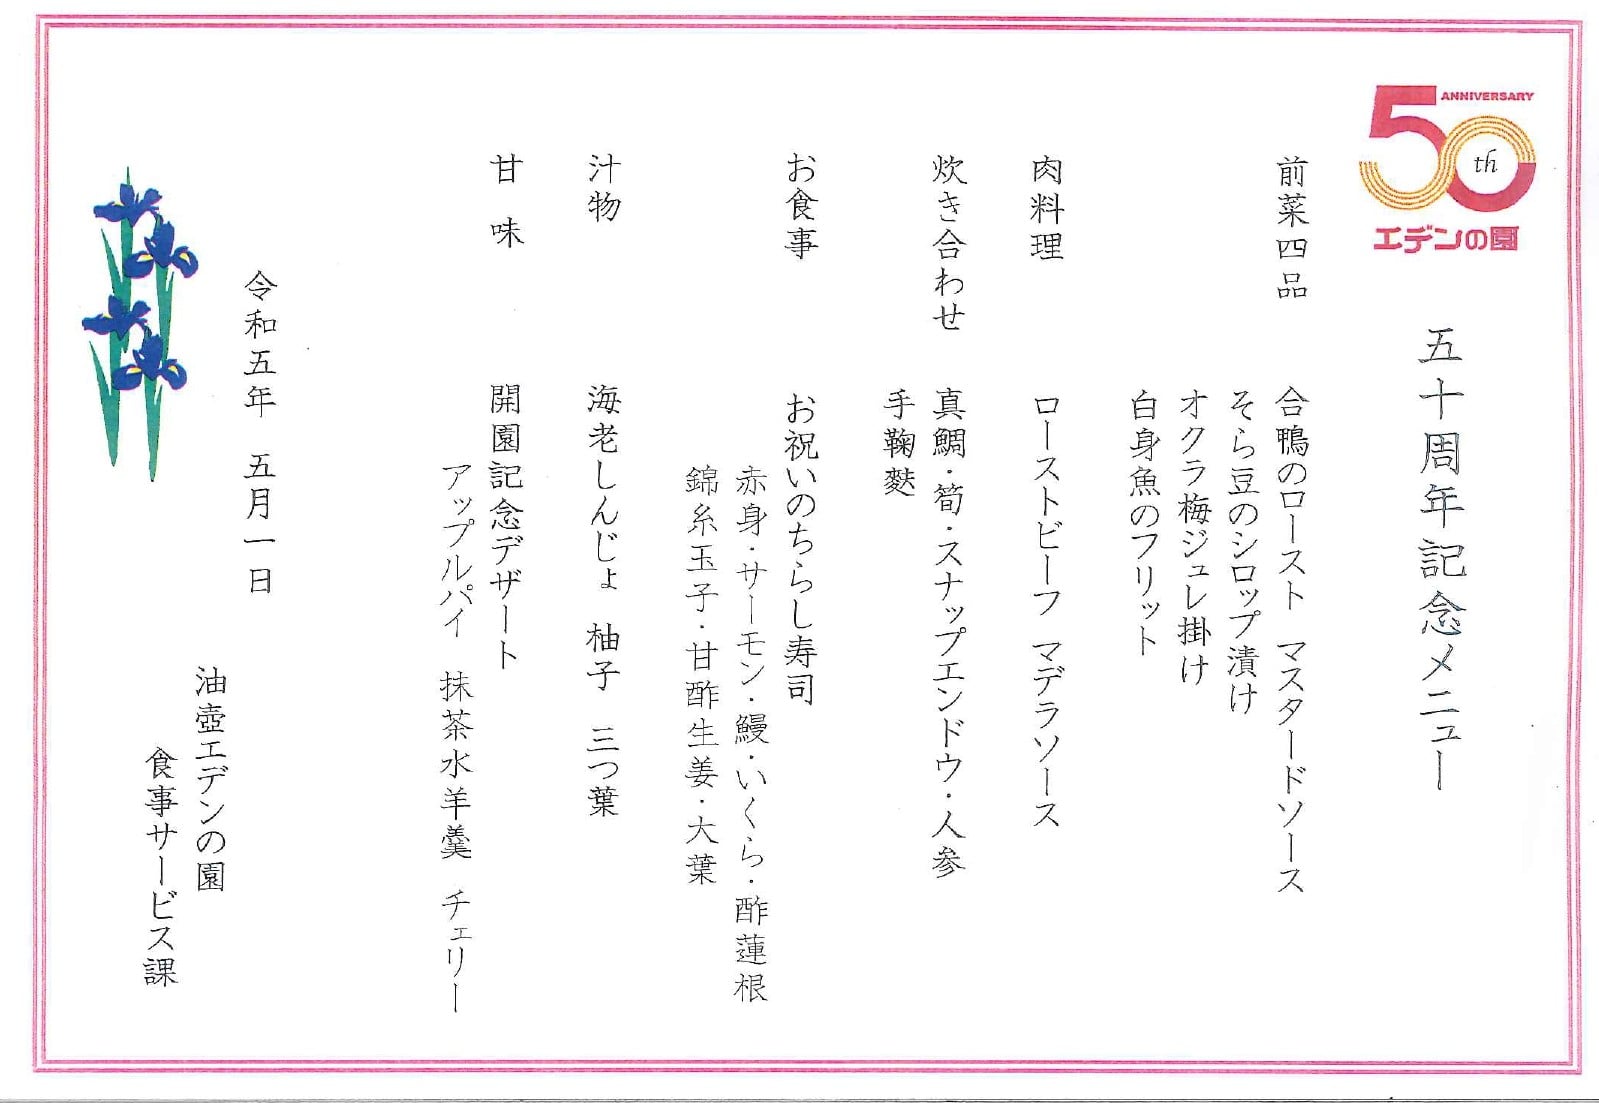 50th
ANNIVERSARY
エデンの園
五十周年記念メニュー
前菜四品　合鴨のロースト　マスタードソース
そら豆のシロップ漬け
オクラ梅ジュレ掛け
白身魚のフリット
肉料理　ローストビーフ　マデラソース
炊き合わせ　真鯛・筍・スナップエンドウ・人参
手鞠麩
お食事　お祝いのちらし寿司
赤身・サーモン・鰻・いくら・酢蓮根
錦糸玉子・甘酢生姜・大葉
汁物　海老しんじょ　柚子　三つ葉
甘　味　開園記念デザート
アップルパイ　抹茶水羊羹　チェリー
令和五年　五月一日
油壺エデンの園
食事サービス課